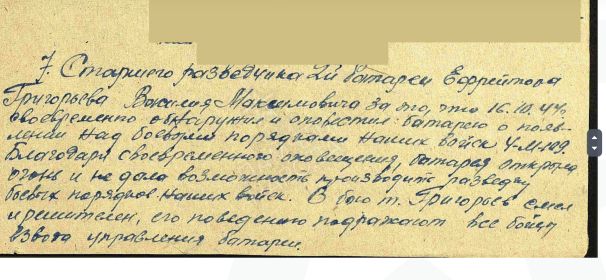 7. Старшего разведчика 2й батареи Ефрейтора
Григорьева Василия Максимовича за то, что 16.10.44г.
своевременно обнаружил и оповестил батарею о появ-
лении над боевыми порядками наших войск 4-М-109.
Благодаря своевременного оповещения батарея открыла
огонь и не дала возможность производить разведку
боевых порядков наших войск. В бою т. Григорьев смел
и решителен, его поведению подражают все бойцы
взвода управления батареи.